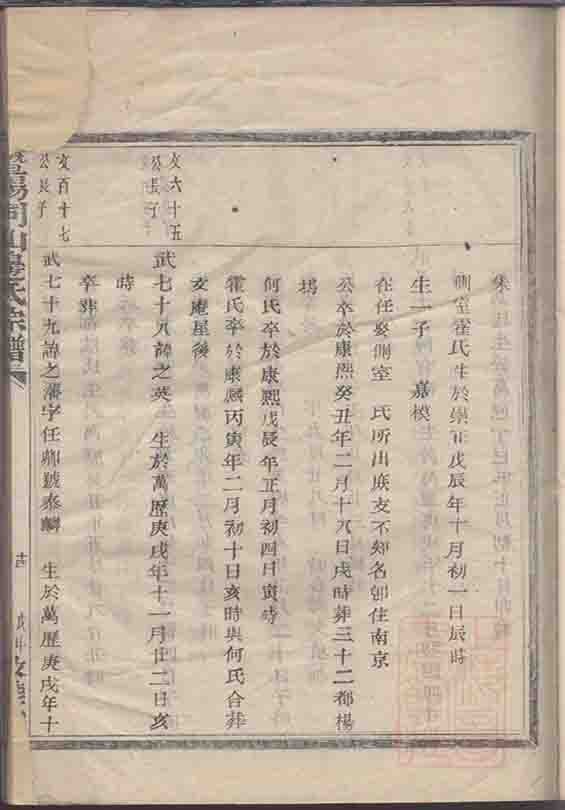 側室霍氏生於崇正戊辰年十月初一日辰時
生一子 嘉模
在任娶側室 氏所出庶支不知名卽住南京
公卒於康熙癸丑年二月十八日戌時葬三十二都楊
塢
何氏卒於康熙戊辰年正月初四日寅時
霍氏卒於康熙丙寅年二月初十日亥時與何氏合葬
文庵星後
文六十五
公長子
武七十八諱之英 生於萬歷庚戌年十一月廿二日亥
時
卒葬
文百十七
公長子
武七十九諱之藩字任卿號泰麟 生於萬歷庚戌年十
暨陽同山邊氏宗譜